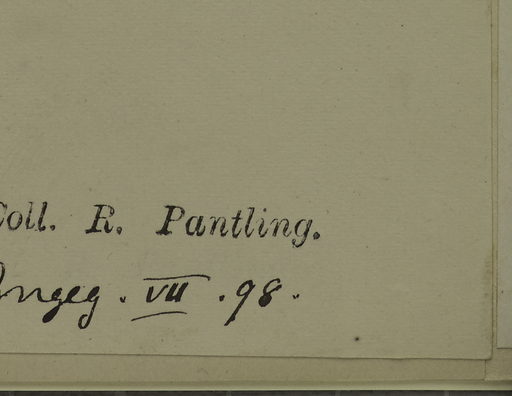 Coll. R. Pantling.
Ingeg. VII. 98.